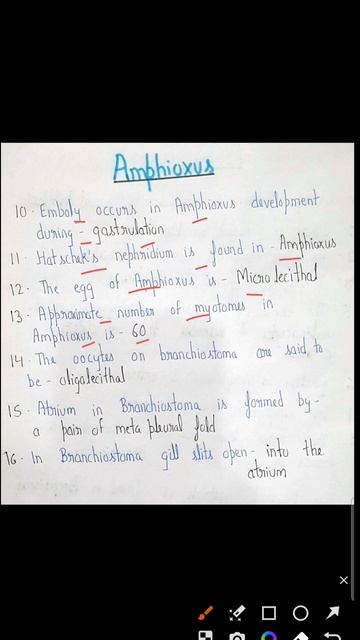 Amphioxus
10. Emboly occurs in Amphioxus development
during - gastrulation
11. Hatschek's nephridium is found in - Amphioxus
12. The egg of Amphioxus is - Microlecithal
13. Approximate number of myotomes in
Amphioxus is - 60
14. The oocytes on branchiostoma are said, to
be - oligolecithal
15. Atrium in Branchiostoma is formed by -
a pair of meta pleural fold
16. In Branchiostoma gill slits open - into the
atrium